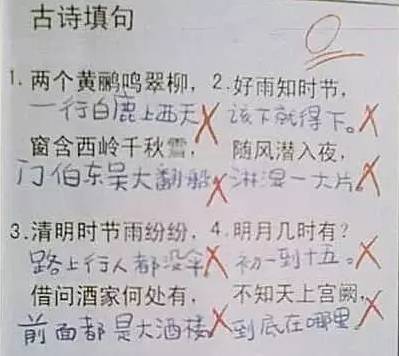 古诗填句
1. 两个黄鹂鸣翠柳，2. 好雨知时节，
一行白鹿上西天 该下就得下。
窗含西岭千秋雪， 随风潜入夜，
门伯东吴大翻船 淋湿一大片。
3. 清明时节雨纷纷，4. 明月几时有？
路上行人都没伞 初一到十五。
借问酒家何处有， 不知天上宫阙，
前面都是大酒楼 到底在哪里